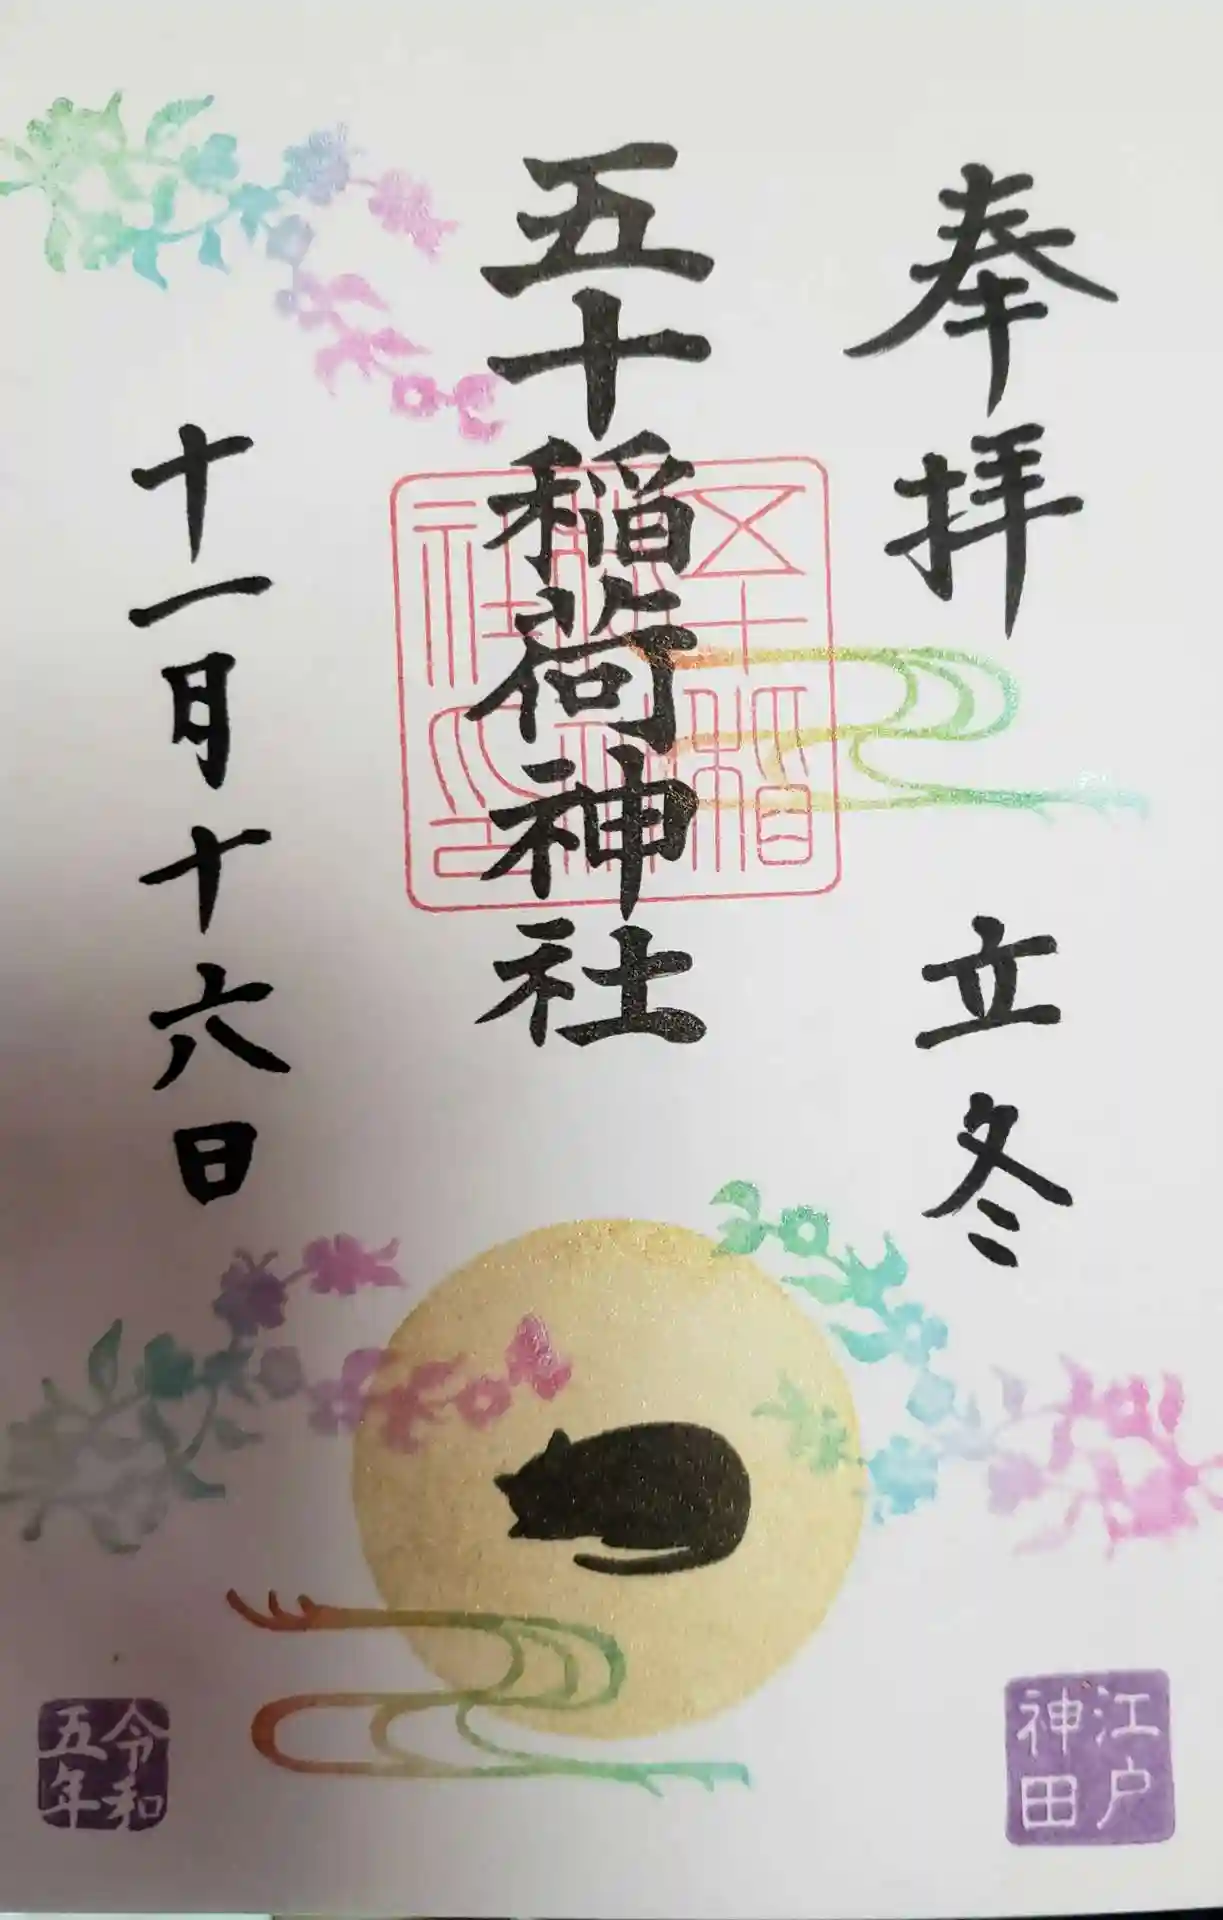 奉拝 立冬
五十稲荷神社
十一月十六日
五十稲
荷神
社之印
江戸
神田
令和
五年